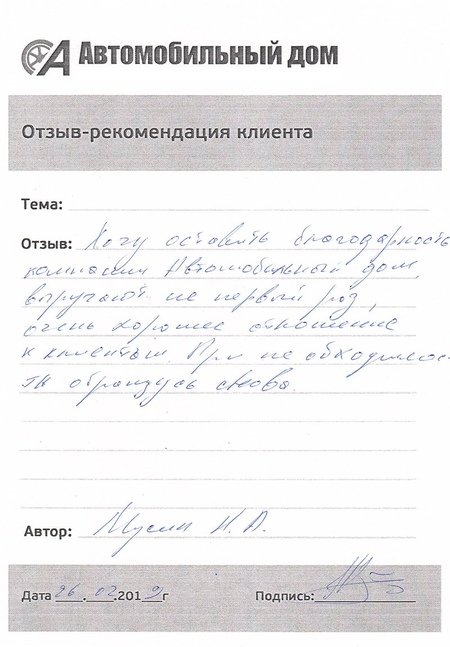 Автомобильный дом
Отзыв-рекомендация клиента
Тема:
Отзыв: Хочу оставить благодарность
компании Автомобильный дом,
выручают не первый раз,
очень хорошее отношение
к клиентам. При не обходимос-
ти обращусь снова.
Автор: Мусин Н. А.
Дата 26.02.2019г Подпись: